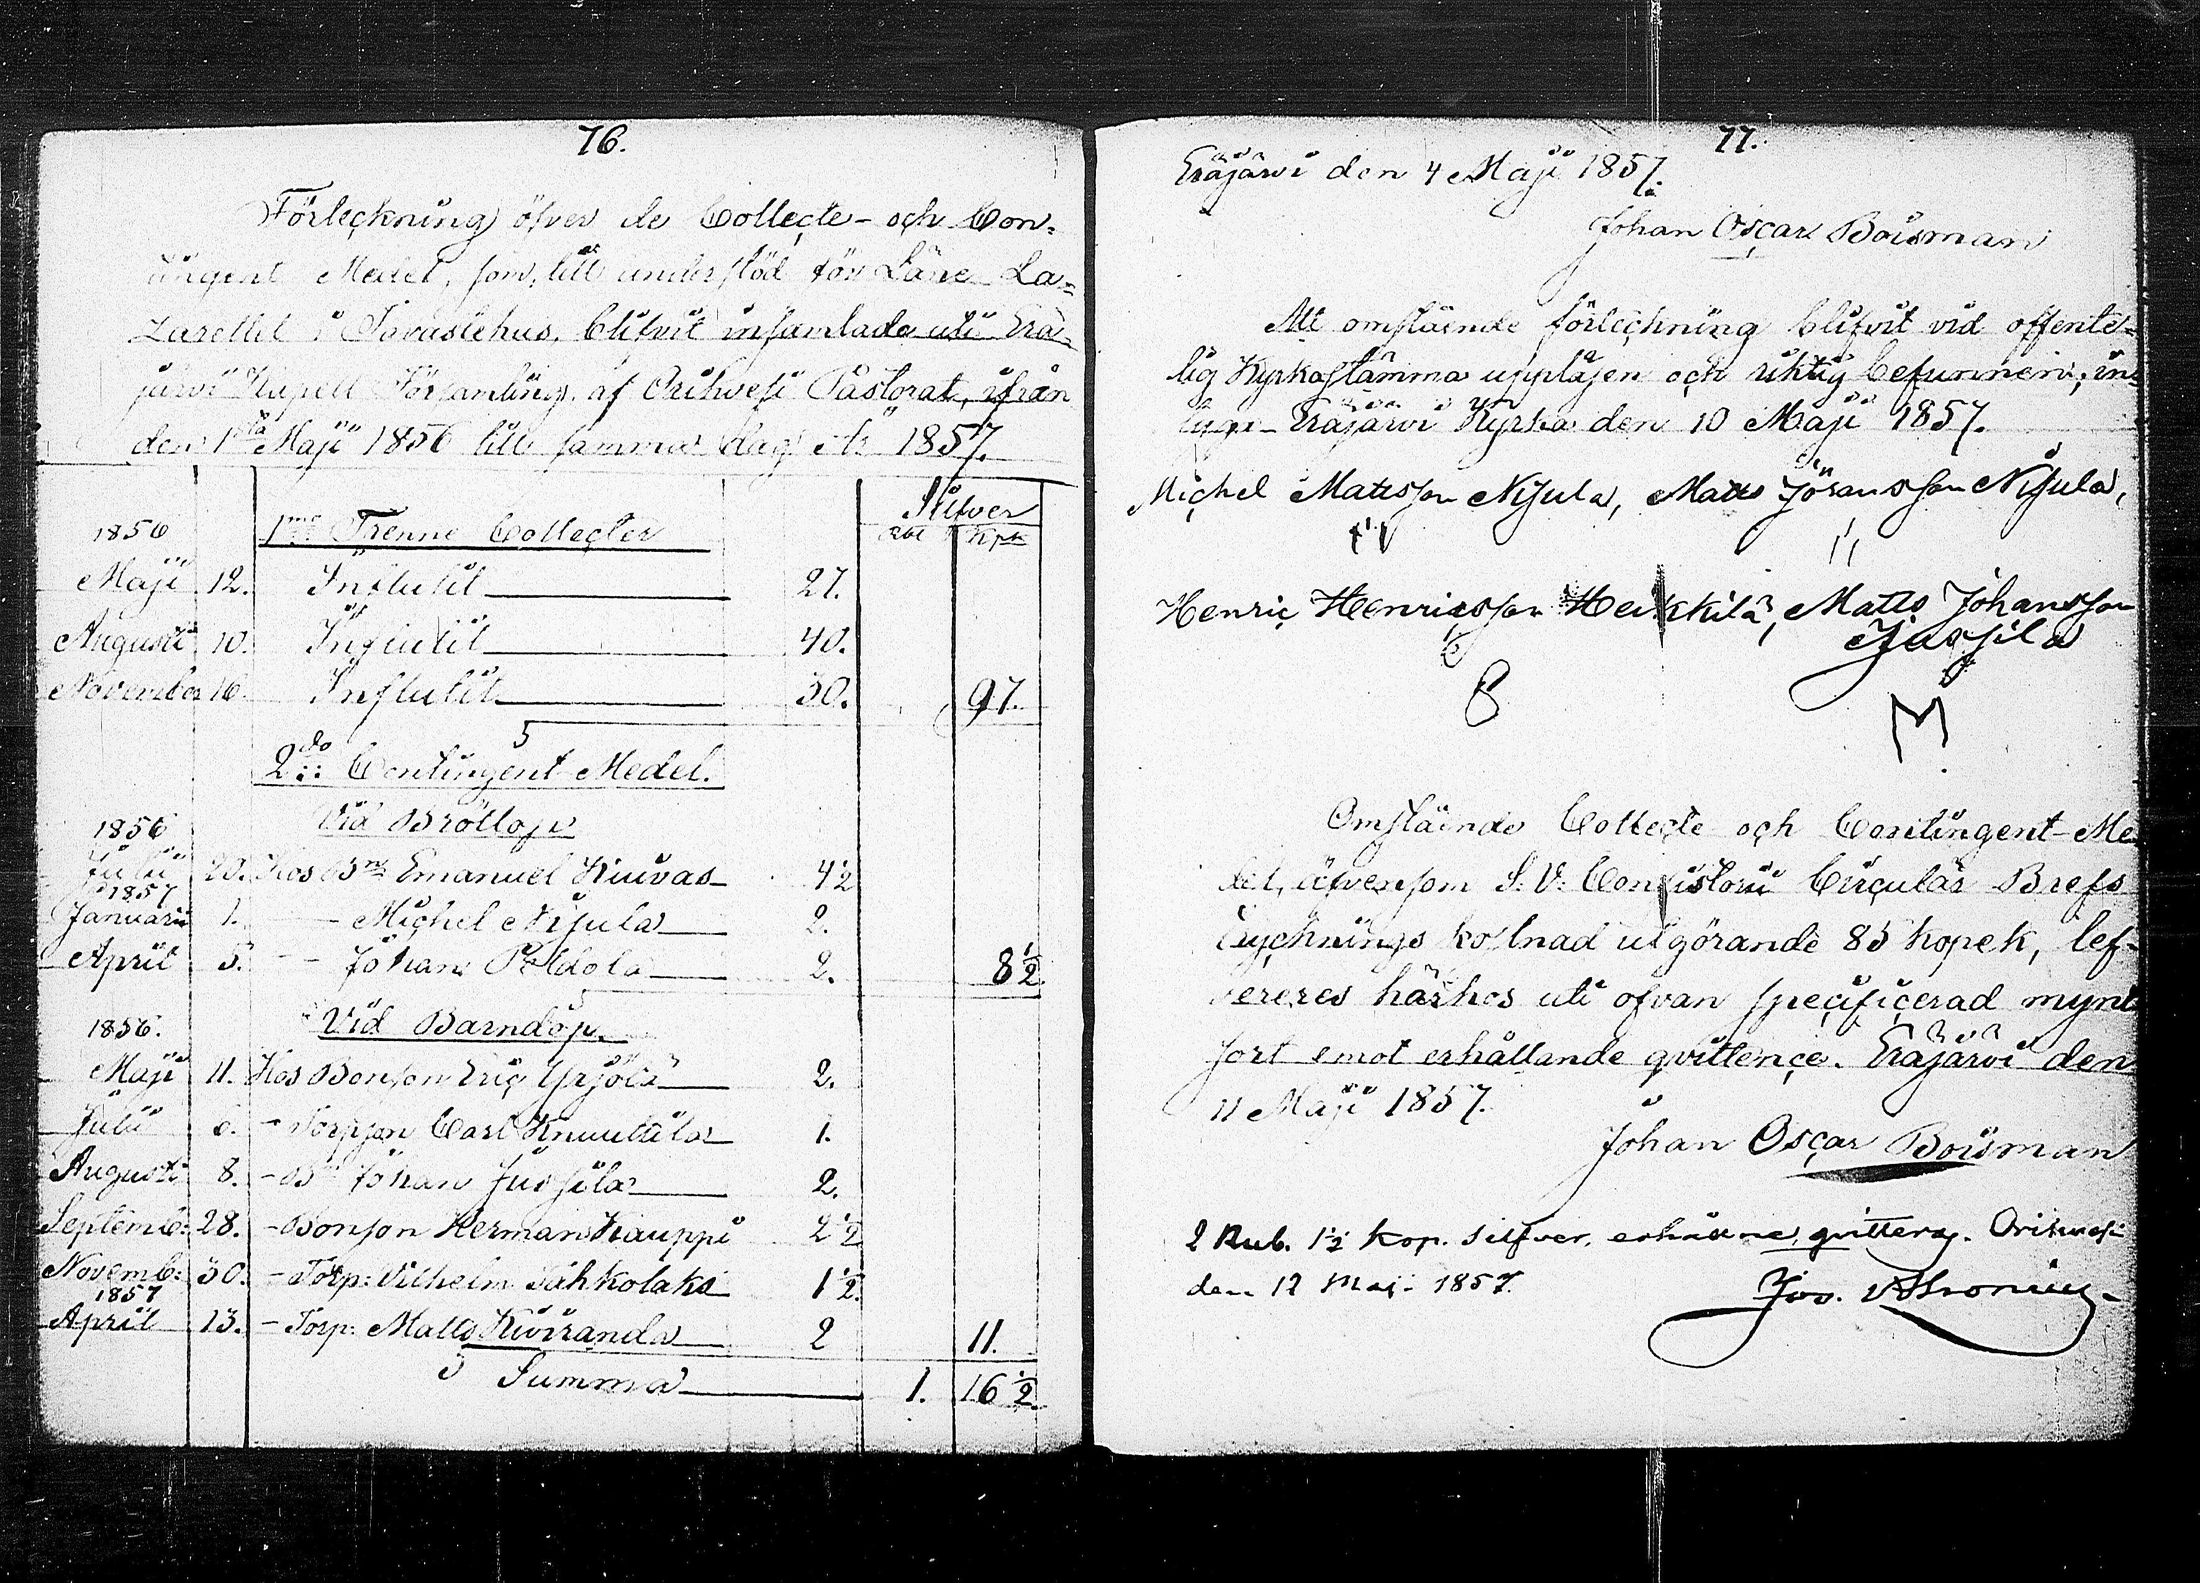 76.
Förteckning öfver de Collecte- och Con=
tingent Medel, som, till understöd för Läne La=
zarettet i Tavastehus, blifvit insamlade uti Erä=
järvi Kapell Församling, af Orihvesi Pastorat, ifrån
den 1sta Maji 1856 till samma dag År 1857.
Silfver
1856 1mo Trenne Collecter Rbl Kpk
Maji 12. Influtit 27.
Augusti 10. Influtit 40.
November 16. Influtit 30. 97.
2do Contingent-Medel.
Vid Bröllop
1856
Julii 20. Hos Bn Emanuel Kiuvas 4½
1857
Januarii 1. - Michel Nijula 2.
April 5. - Johan Peldola 2. 8½
1856. Vid Barndop.
Maji 11. Hos Bonson Eric Yrjölä 2.
Julii 6. - Torpson Carl Knuutila 1.
Augusti 8. - Bn Johan Jussila 2.
Septemb: 28. - Bonson Herman Kauppi 2½
Novemb: 30. - Torp: Vilhelm Tähkolaks 1½
1857
April 13. - Torp: Matts Kiviranda 2 11.
Summa 1. 16½
77.
Eräjärvi den 4 Maji 1857.
Johan Oscar Boisman
Att omstående förteckning blifvit vid offente=
lig Kyrkostämma uppläsen och riktig befunnen, in=
tyga- Eräjärvi Kyrka den 10 Maji 1857.
Michel Mattsson Nijula, Matts Jöransson Nijula,
Henric Henricsson Heikkilä, Matts Johansson
Jussila
M
Omstående Collecte och Contingent-Me
del, äfvensom S: V: Consistorii Circulär Brefs
trycknings kostnad utgörande 85 kopek, lef-
vereres härhos uti ofvan specificerad mynt
sort emot erhållande qvittence. Eräjärvi den
11 Maji 1857.
Johan Oscar Boisman
2 Rub. 1½ kop. silfver, erhållne, qvitteras. Orihvesi
den 12 Maj 1857.